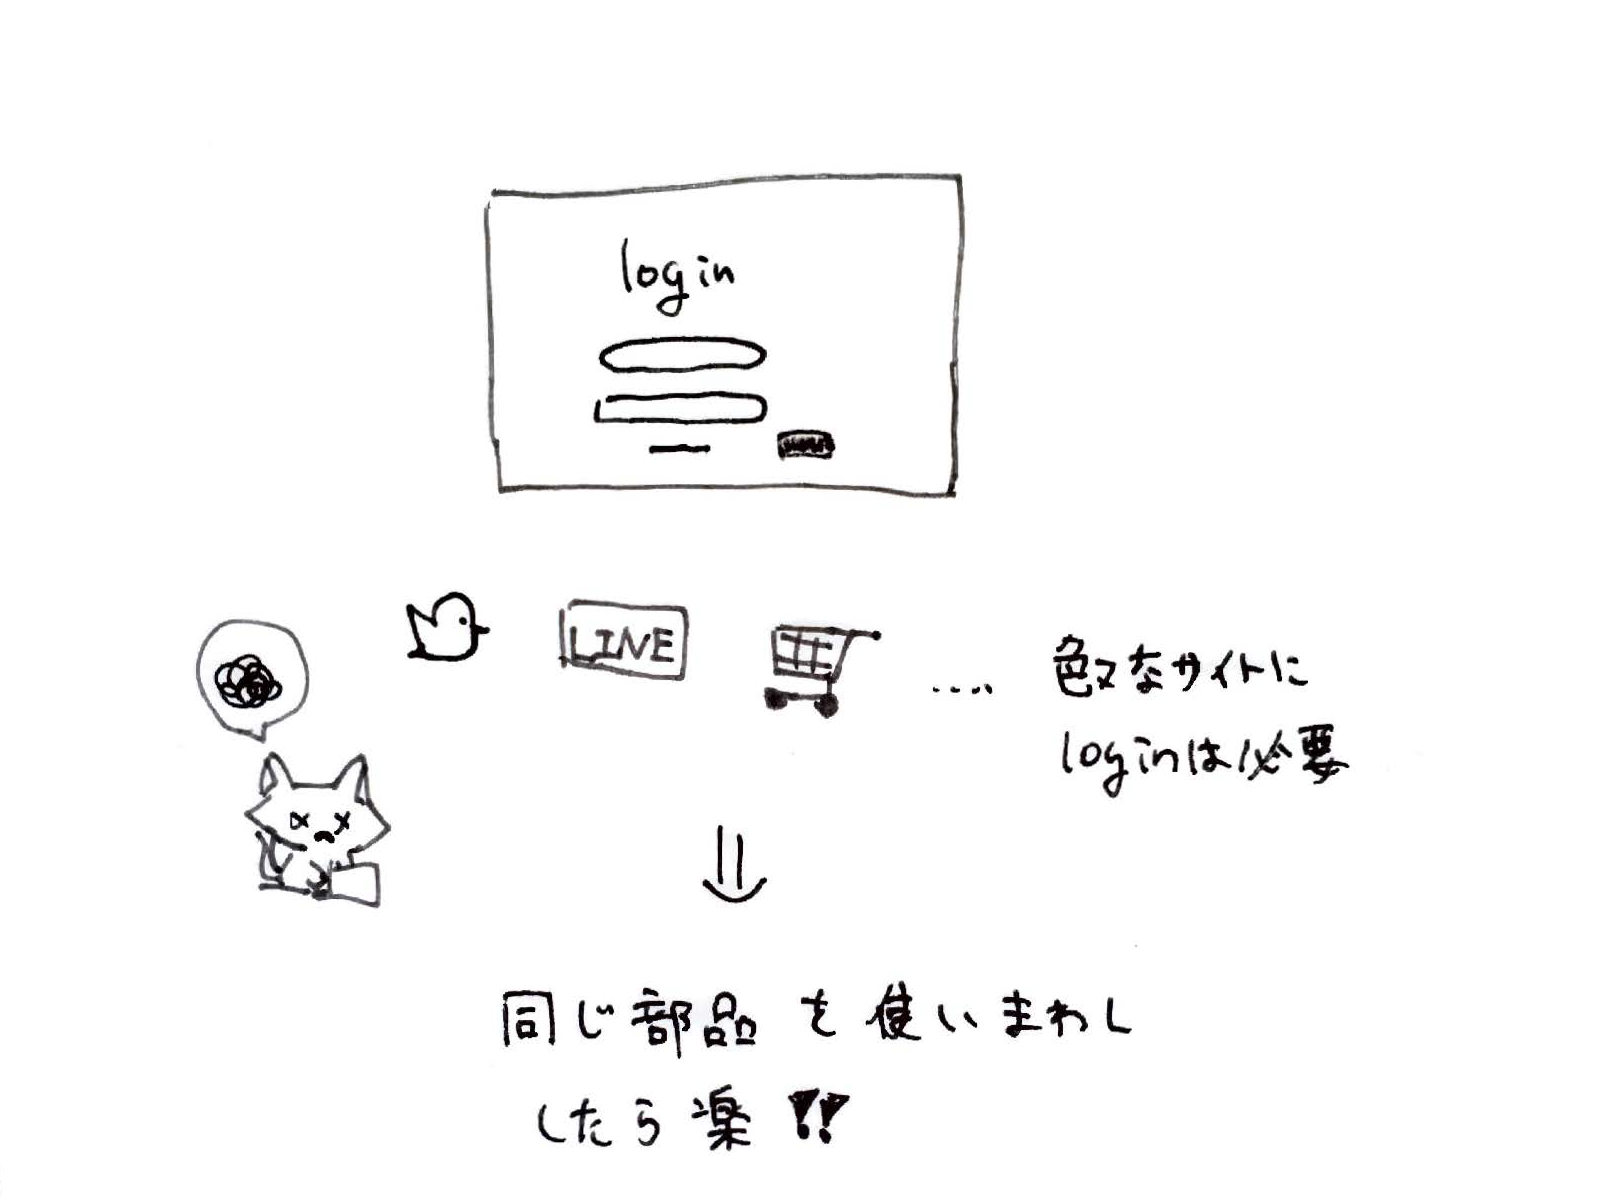 login
LINE
.... 色々なサイトに
loginは必要
同じ部品を使いまわし
したら楽!!